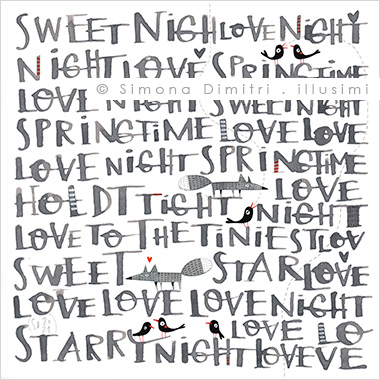 SWEET NIGH LOVE NIGHT
NIGHT LOVE SPRINGTIME
© Simona Dimitri . illusimi
LOVE NIGHT SWEET NIGHT
SPRINGTIME LOVE LOVE
LOVE NIGHT SPRINGTIME
HOLD TIGHT LOVE
NIGHT
LOVE TO THE TINIEST LOV
SWEET STAR LOVE
LOVE LOVE LOVE NIGHT
STARRY NIGHT LOVE LO
LOVE VE